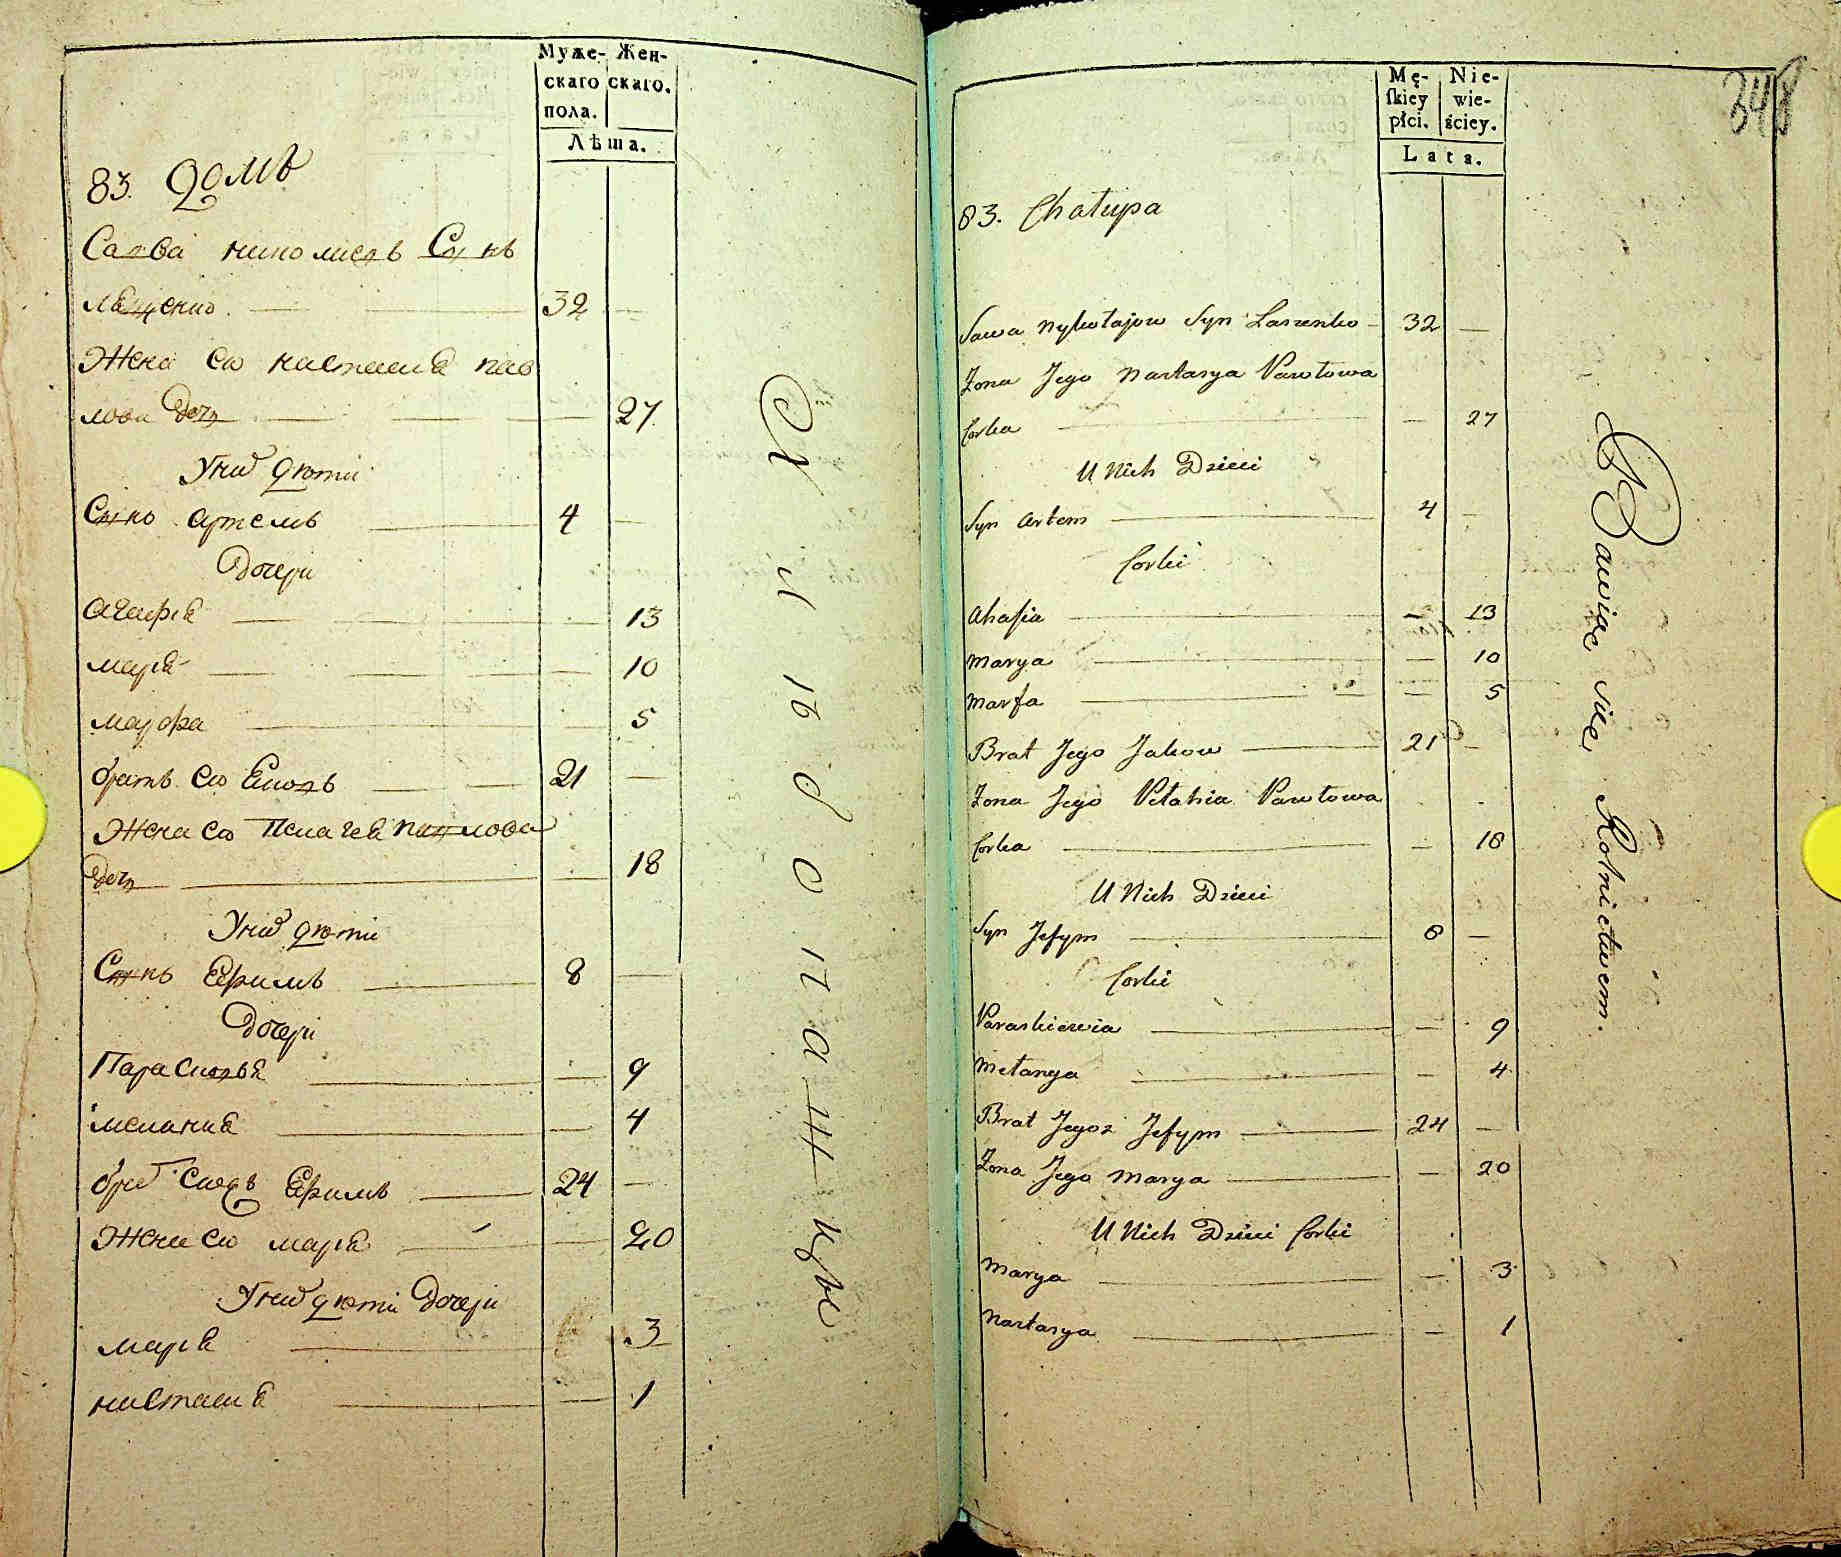 Муже- Жен-
скаго скаго.
пола.
Лѣта.
83. Домъ
Савва николаевъ Сынъ
лященко 32
Жена его настасия пав
лова дочь 27
У них дети
Сынъ артемъ 4
Дочери
агафия 13
мария 10
марфа 5
братъ его Яковъ 21
Жена его Пелагея павлова
дочь 18
У них дети
Сынъ Ефимъ 8
Дочери
Парасковья 9
мелания 4
Ефимъ 24
Жена его мария 20
У них дети Дочери
мария 3
настасия 1
Хлебопашцы
348
Mę- Nie-
skiey wie-
płci. ściey.
Lata.
83. Chałupa
Sawa Nykołajow Syn Laszenko 32
Zona Jego Nastasya Pawłowa
Corka 27
U Nich Dzieci
Syn Artem 4
Corki
Ahafia 13
Marya 10
Marfa 5
Brat Jego Jakow 21
Zona Jego Pełahia Pawłowa
Corka 18
U Nich Dzieci
Syn Jefym 8
Corki
Paraskiewia 9
Mełanya 4
Brat Jegoż Jefym 24
Zona Jego Marya 20
U Nich Dzieci Corki
Marya 3
Nastasya 1
Bawiąc się Rolnictwem.